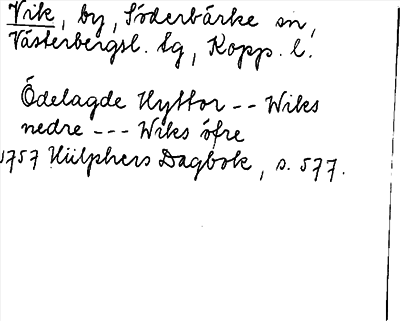 Vik, by, Söderbärke sn,
Västerbergsl. tg, Kopp. l.
Ödelagde Hyttor -- Wiks
nedre --- Wiks öfre
1757 Hülphers Dagbok, s. 577.